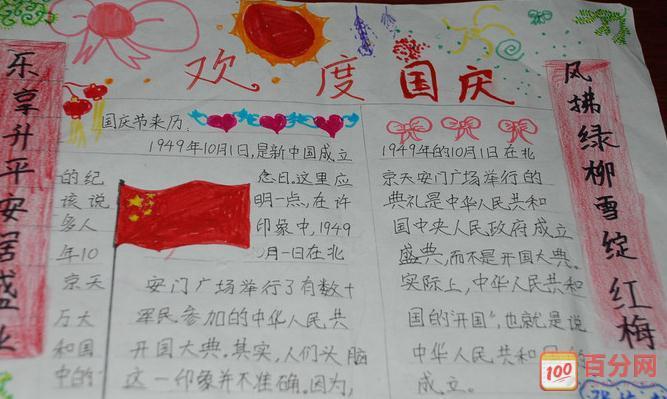 欢度国庆
乐享升平安居盛业
风拂绿柳雪绽红梅
国庆节来历:
1949年10月1日,是新中国成立
的纪念日。这里应
该说明一点,在许
多人印象中,1949
年10月一日在北
京天安门广场举行了有数十
万大军民参加的中华人民共
和国开国大典。其实,人们头脑
中的这一印象并不准确。因为,
1949年的10月1日在北
京天安门广场举行的
典礼是中华人民共和
国中央人民政府成立
盛典,而不是开国大典。
实际上,中华人民共和
国的"开国",也就是说
中华人民共和国的
成立。
100
百分网